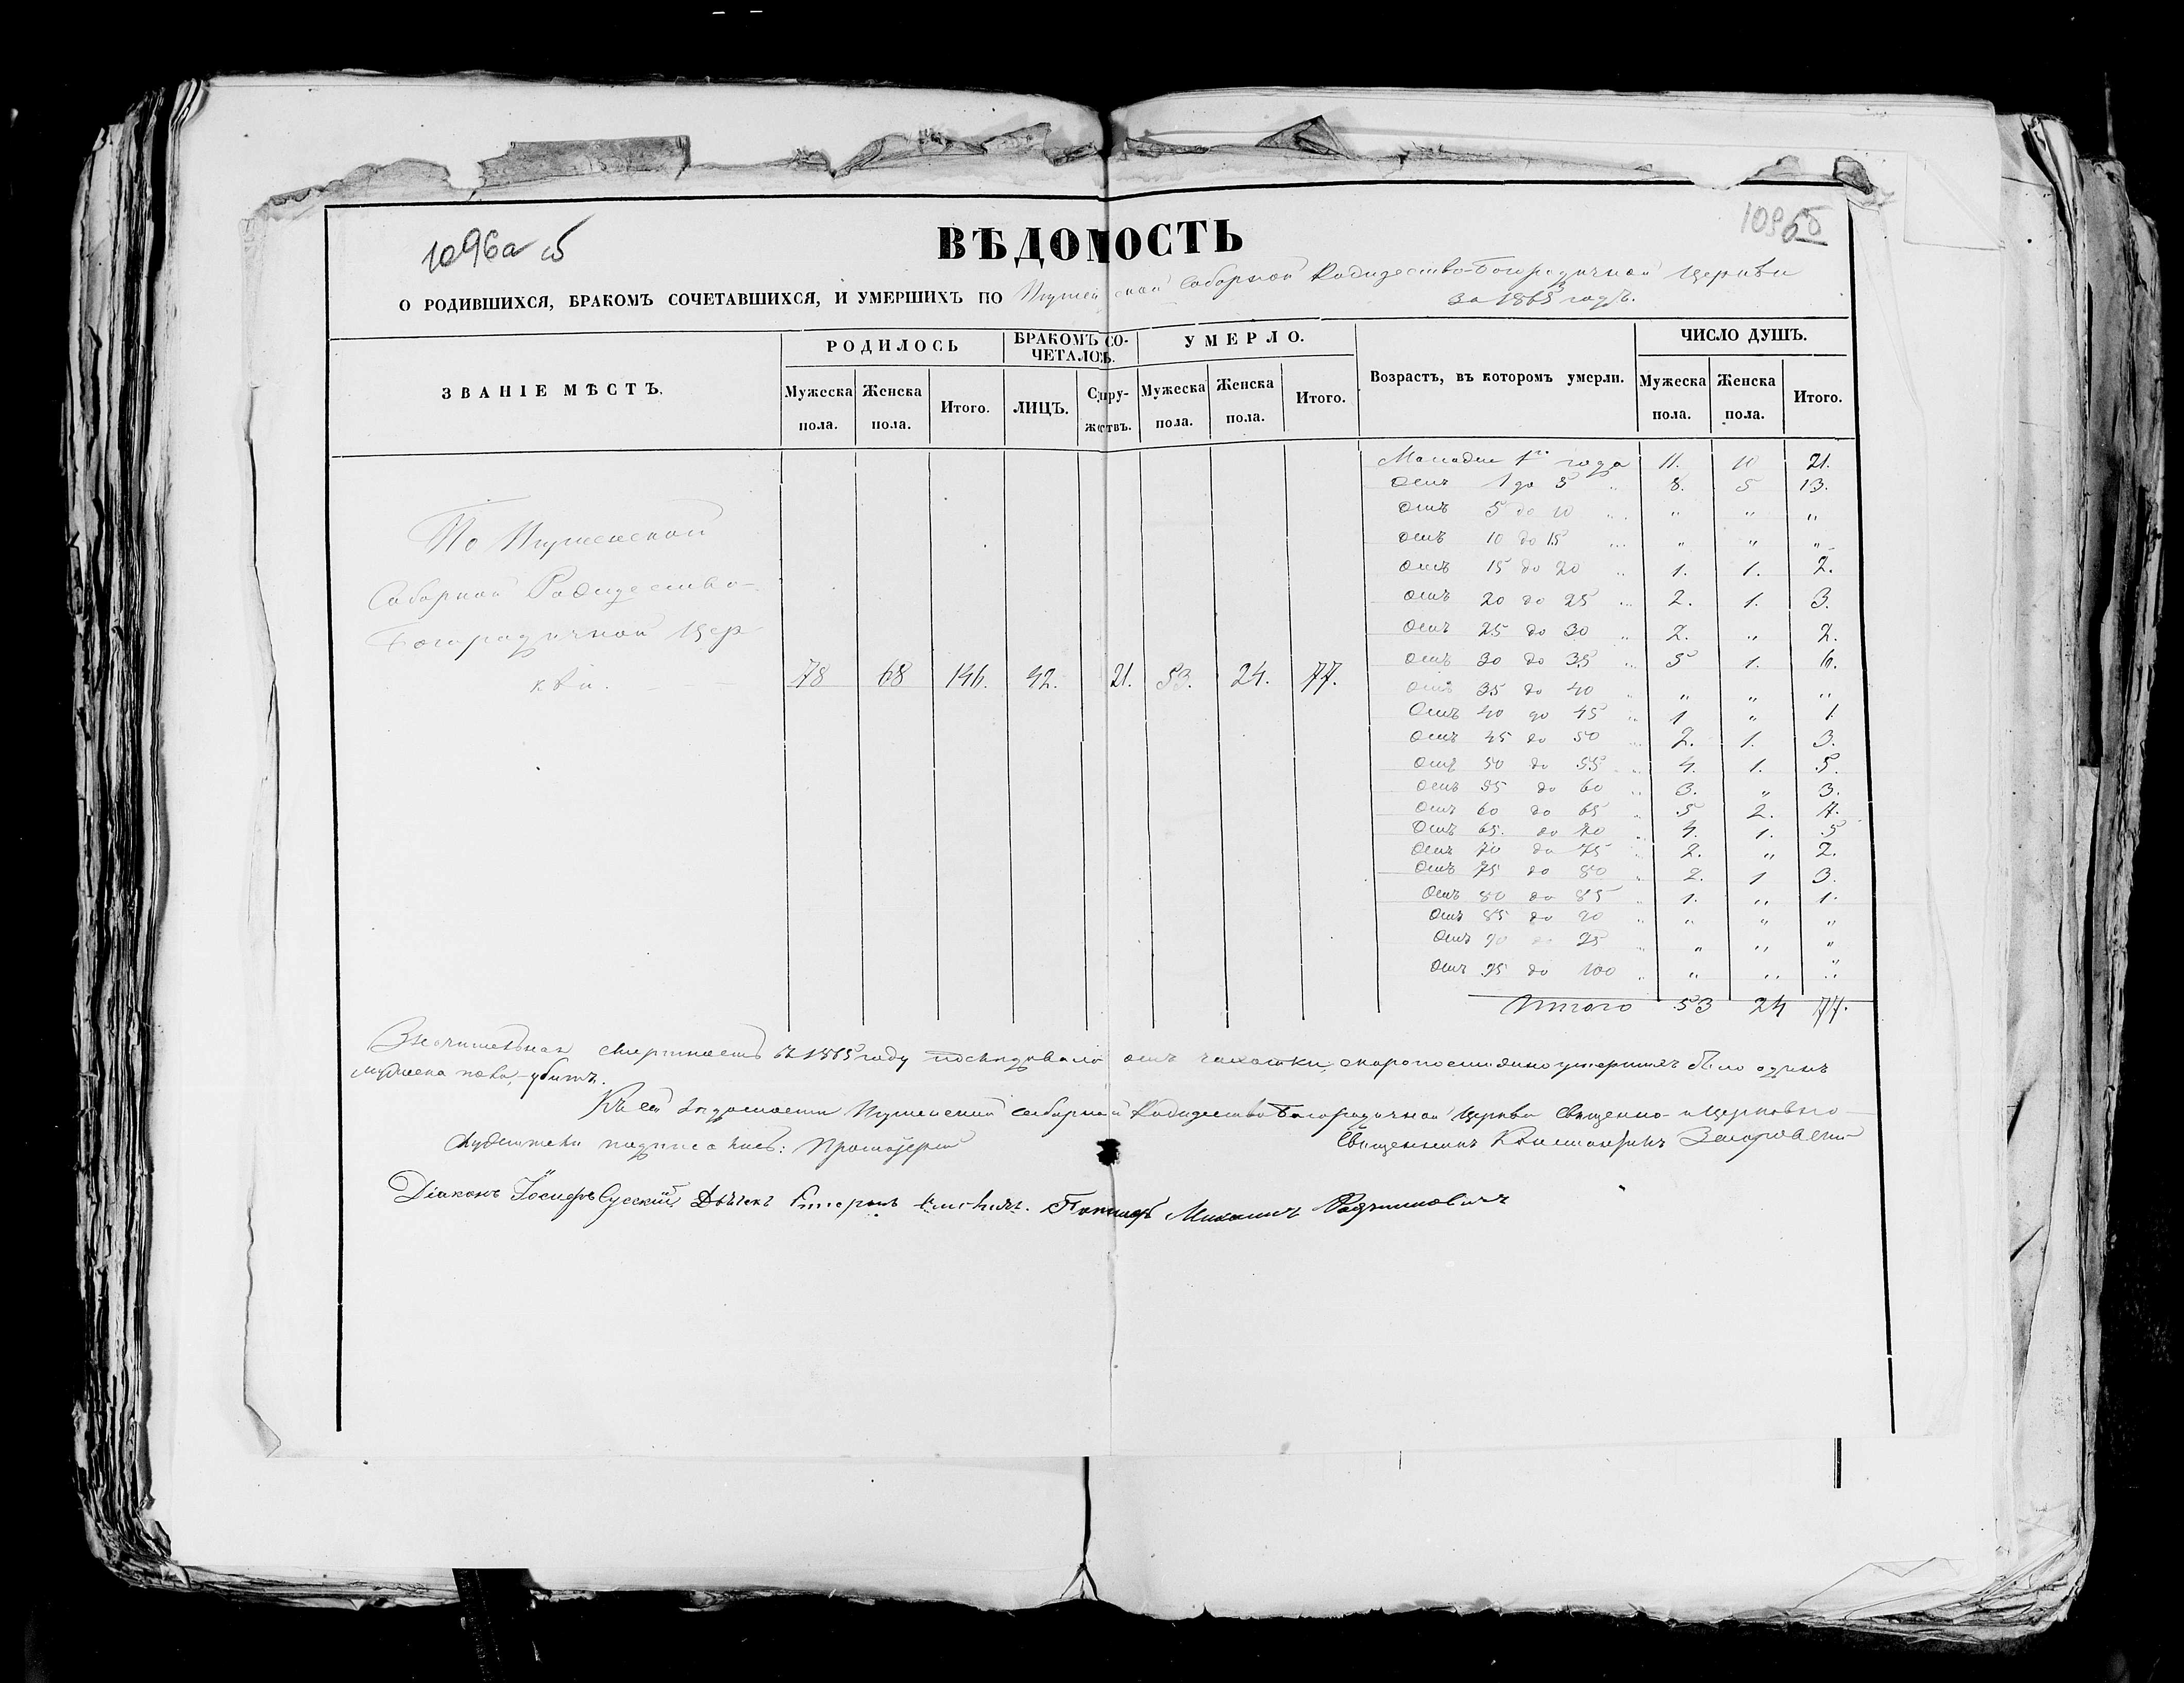 1096а б
1096б
ВѢДОМОСТЬ
О РОДИВШИХСЯ, БРАКОМЪ СОЧЕТАВШИХСЯ, И УМЕРШИХЪ ПО Игуменской Соборной Рождество-Богородичной Церкви
за 1865 годъ.
ЗВАНІЕ МѢСТЪ.
РОДИЛОСЬ
БРАКОМЪ СО-
ЧЕТАЛОСЬ.
УМЕРЛО.
Возрастъ, въ которомъ умерли.
ЧИСЛО ДУШЪ.
Мужеска пола. Женска пола. Итого. ЛИЦЪ. Супру-жествъ. Мужеска пола. Женска пола. Итого. Мужеска пола. Женска пола. Итого.
По Игуменской
Соборной Рождество-
Богородичной Цер
кви.
78 68 146. 42. 21. 53. 24. 77.
Моложе 1го года 11. 10 21.
Отъ 1 до 5 " 8. 5 13.
Отъ 5 до 10 " " " "
Отъ 10 до 15 " " " "
Отъ 15 до 20 " 1. 1. 2.
Отъ 20 до 25 " 2. 1. 3.
Отъ 25 до 30 " 2. " 2.
Отъ 30 до 35 " 5 1. 6.
Отъ 35 до 40 " " " "
Отъ 40 до 45 " 1 " 1.
Отъ 45 до 50 " 2. 1. 3.
Отъ 50 до 55 " 4. 1. 5.
Отъ 55 до 60 " 3. " 3.
Отъ 60 до 65 " 5 2. 7.
Отъ 65. до 70 " 4. 1. 5
Отъ 70 до 75 " 2. " 2.
Отъ 75 до 80 " 2. 1 3.
Отъ 80 до 85 " 1. " 1.
Отъ 85 до 90 " " " "
Отъ 90 до 95 " " " "
Отъ 95 до 100 " " " "
Итого 53 24 77.
Значительная смертность въ 1865 году последовала отъ чахотки, скоропостижно умершихъ было одинъ
мужеска пола, - убитъ.
Къ сей ведомости Игуменской соборной Рождество Богородичной Церкви Священно- и Церковно-
служители подписались: Протоіерей
Священникъ Константинъ
Діаконъ Іосифъ Сусскій Дьячекъ Пономарь Михаилъ